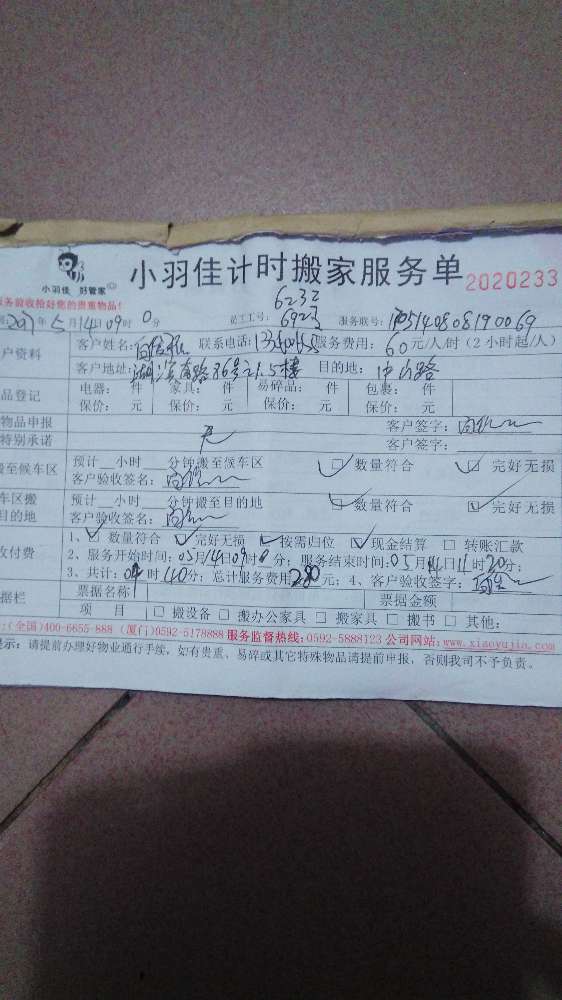 小羽佳计时搬家服务单 2020233
小羽佳 好管家
服务前验收
员工工号: 6232 6923 服务联号:
5月14日09时0分
户资料 客户姓名: 联系电话: 服务费用: 60元/人·时 (2小时起/人)
客户地址: 湖滨南路 目的地: 中山路
品登记 电器: 件 家具: 件 易碎品: 件 包裹: 件
保价: 元 保价: 元 保价: 元 保价: 元
物品申报 无 客户签字:
特别承诺 客户签字:
搬至候车区 预计__小时__分钟搬至候车区 数量符合 完好无损
客户验收签名:
车区搬 预计__小时__分钟搬至目的地 数量符合 完好无损
目的地 客户验收签名:
收付费 1、 数量符合 完好无损 按需归位 现金结算 转账汇款
2、服务开始时间: 05月14日09时0分; 服务结束时间: 05月14日11时20分;
3、共计: 04时40分; 总计服务费用280元; 4、客户验收签字:
据栏 票据名称 票据金额
项 目 搬设备 搬办公家具 搬家具 搬书 其他:
:(全国)400-6655-888 (厦门)0592-5178888 服务监督热线:0592-5888123 公司网站:www.xiaoyujia.com
提示: 请提前办理好物业通行手续, 如有贵重、易碎或其它特殊物品请提前申报, 否则我司不予负责。